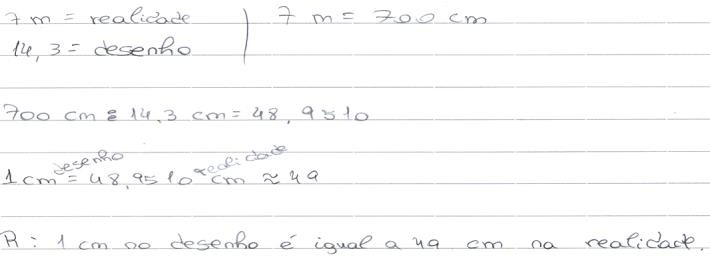 7 m = realidade | 7 m = 700 cm
14,3 = desenho
700 cm : 14,3 cm = 48,9510
desenho realidade
1 cm = 48,9510 cm ≈ 49
R: 1 cm no desenho é igual a 49 cm na realidade.